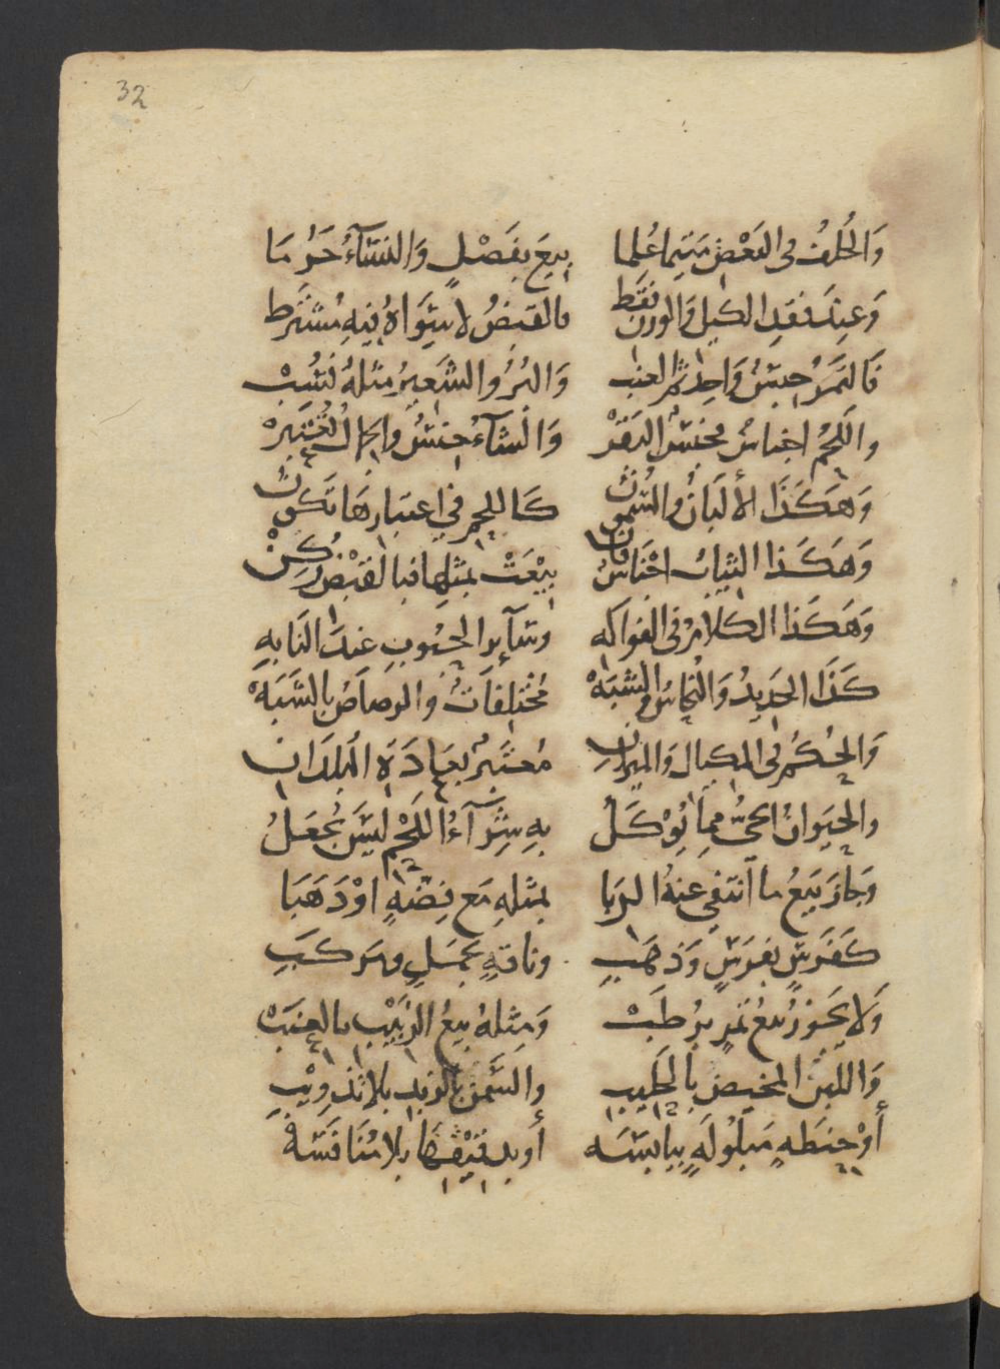 32
وَالخُلفُ فى البَعْضِ مَتَى ما عُلِما بِيعَ بِفَضْلٍ وَالنَّسَآءُ حَرُمَا
وَعِندَ فَقدِ الكيلِ وَالوزن فَقَط فالقبضُ لا سِوَاهُ فِيهِ مُشتَرط
فَالتَمرُ جِنسٌ وَاحِد ثم العنب وَالبُرُّ والشَعِيرُ مِثلهُ نُسِبْ
واللحمُ اجناسٌ فجنسٌ البَقَرْ وَالشآءُ جِنسٌ والجمالُ تُعْتَبَرْ
وَهَكَذَا الألبَانُ والسُّمونُ كَاللحمِ فى اعتبَارِهَا تَكونُ
وَهَكَذا الثيَابُ اجْنَاسٌ فان بِيْعَتْ بمثلِها فبالقَبْضِ زُكِنْ
وَهَكَذا الكلامُ فى الفواكه وسَآيرِ الحبُوبِ عندَ النَابِهِ
كَذَا الحَدِيدُ وَالنُّحاسُ والشبَهْ مُختَلِفَاتٌ والرصاصُ بالشَّبَهْ
وَالحُكمُ فى المكيال وَالميزانِ مُعتَبَرٌ بعَادَةِ البُلدَانِ
والحيَوانُ الحىُّ مِمَّا يُوْكَلُ بِهِ شِرَآءُ اللحْمِ ليسَ يُجعَلُ
وَجَازَ بَيعُ ما انتفى عنهُ الرِبا بمثلهِ مَع فِضَّةٍ اوْ ذَهَبَا
كَفَرَسٍ بفَرَسٍ وَذَهَبِ وناقةٍ بجمَلٍ ومَركَبِ
وَلا يجَوزُ بيعُ تَمرٍ برُطَبْ وَمِثلهُ بيعُ الزَبِيْبِ بالعِنَبْ
وَاللبن المخيض بالحَليبِ والسَّمن بالزبدِ بلا تَذويْبِ
أَوْ حِنطَةٍ مَبلُولَةٍ بيَابسَه أو بدقيْقهَا بلا مُنَافَسَهْ